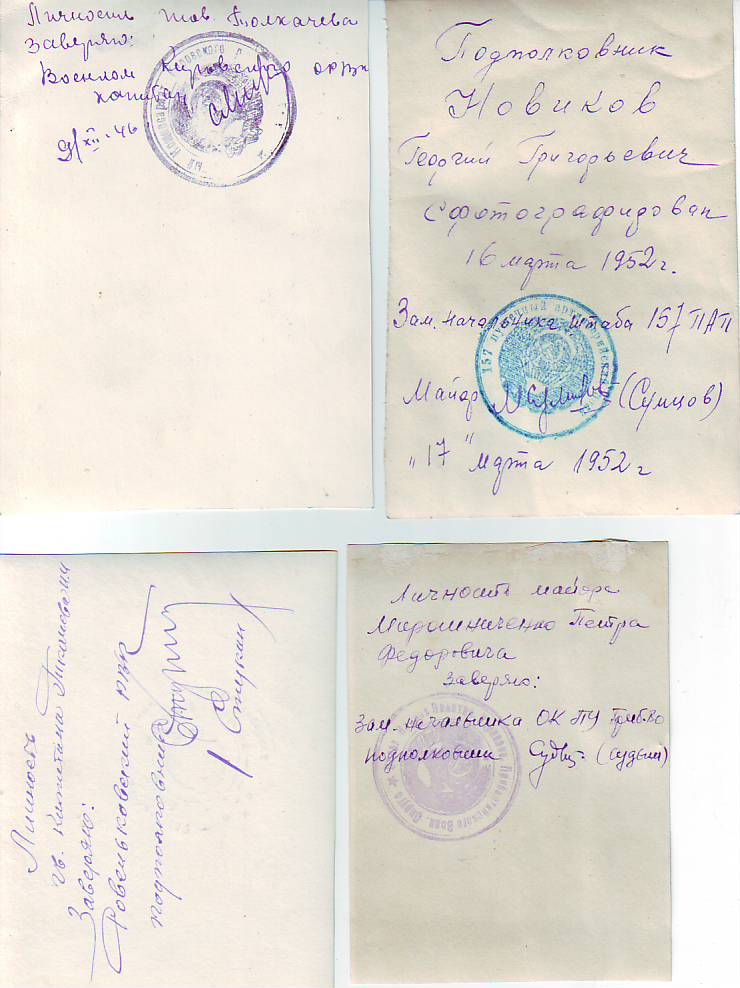 Личность тов. Толкачева
Заверяю:
Военком Кировского ОКРВК
капитан
9/XII-46
Подполковник
Новиков
Георгий Григорьевич
Сфотографирован
16 марта 1952 г.
Зам. начальника штаба 157 ПАП
157 пушечный артиллерийский
Майор (Сумцов)
„17" марта 1952 г
Личность
гв. капитана
Заверяю:
Ровеньковский РВК
подполковник
Личность майора
Мирошниченко Петра
Федоровича
Заверяю:
Зам. начальника ОК ПУ ПрибВО
подполковник (Судьин)